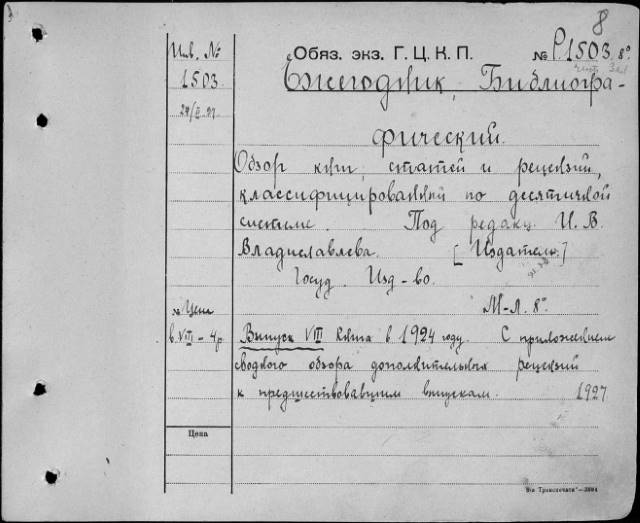 8
Инв. №
1503
Обяз. экз. Г. Ц. К. П. № Р1503 8°
Ежегодник Библиогра-
фический.
Обзор книг, статей и рецензий,
классифицированный по десятичной
системе. Под редакц. И. В.
Владиславлева. [Издатель.]
Госуд. Изд-во.
М-Л. 8°.
№ Цена
в. VIII - 4р.
Выпуск VIII Книга в 1924 году. С приложением
сводного обзора дополнительных рецензий
к предшествовавшим выпускам. 1927
Цена